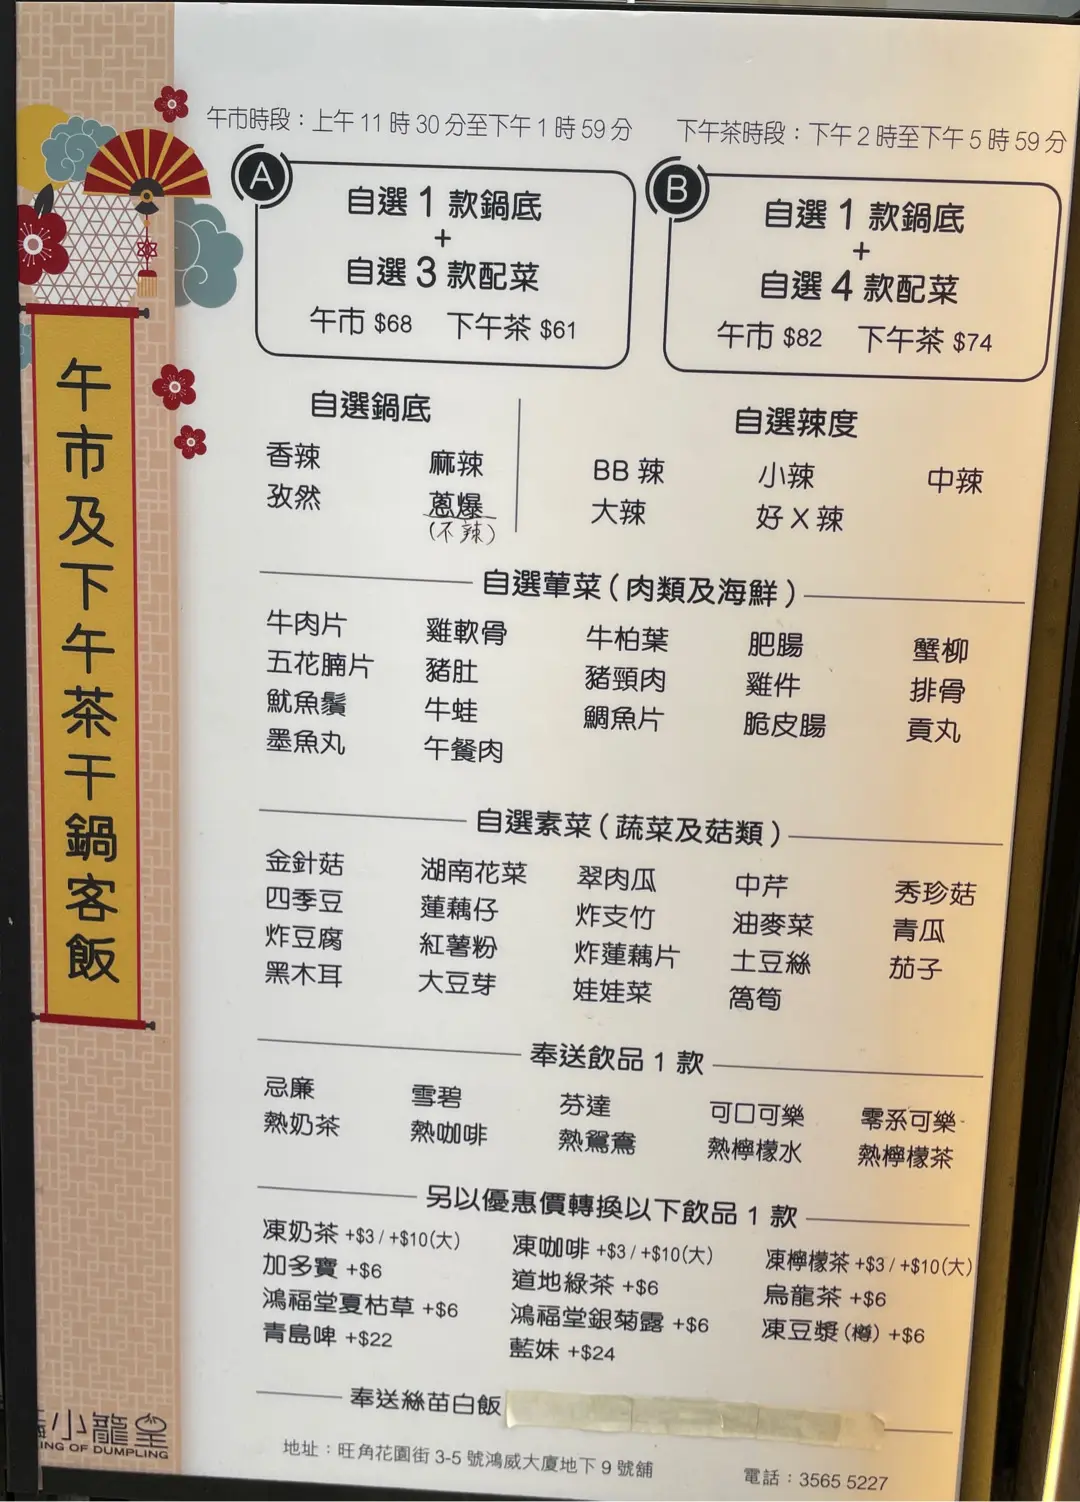 午市時段：上午 11 時 30 分至下午 1 時 59 分
下午茶時段：下午 2 時至下午 5 時 59 分
A
自選 1 款鍋底
+
自選 3 款配菜
午市 $68 下午茶 $61
B
自選 1 款鍋底
+
自選 4 款配菜
午市 $82 下午茶 $74
午市及下午茶干鍋客飯
自選鍋底
香辣 麻辣
孜然 蔥爆
(不辣)
自選辣度
BB 辣 小辣 中辣
大辣 好 X 辣
自選葷菜（肉類及海鮮）
牛肉片 雞軟骨 牛柏葉 肥腸 蟹柳
五花腩片 豬肚 豬頸肉 雞件 排骨
魷魚鬚 牛蛙 鯛魚片 脆皮腸 貢丸
墨魚丸 午餐肉
自選素菜（蔬菜及菇類）
金針菇 湖南花菜 翠肉瓜 中芹 秀珍菇
四季豆 蓮藕仔 炸支竹 油麥菜 青瓜
炸豆腐 紅薯粉 炸蓮藕片 土豆絲 茄子
黑木耳 大豆芽 娃娃菜 萵筍
奉送飲品 1 款
忌廉 雪碧 芬達 可口可樂 零系可樂
熱奶茶 熱咖啡 熱鴛鴦 熱檸檬水 熱檸檬茶
另以優惠價轉換以下飲品 1 款
凍奶茶 +$3 / +$10(大) 凍咖啡 +$3 / +$10(大) 凍檸檬茶 +$3 / +$10(大)
加多寶 +$6 道地綠茶 +$6 烏龍茶 +$6
鴻福堂夏枯草 +$6 鴻福堂銀菊露 +$6 凍豆漿 (樽) +$6
青島啤 +$22 藍妹 +$24
奉送絲苗白飯
小龍皇
KING OF DUMPLING
地址：旺角花園街 3-5 號鴻威大廈地下 9 號舖
電話：3565 5227